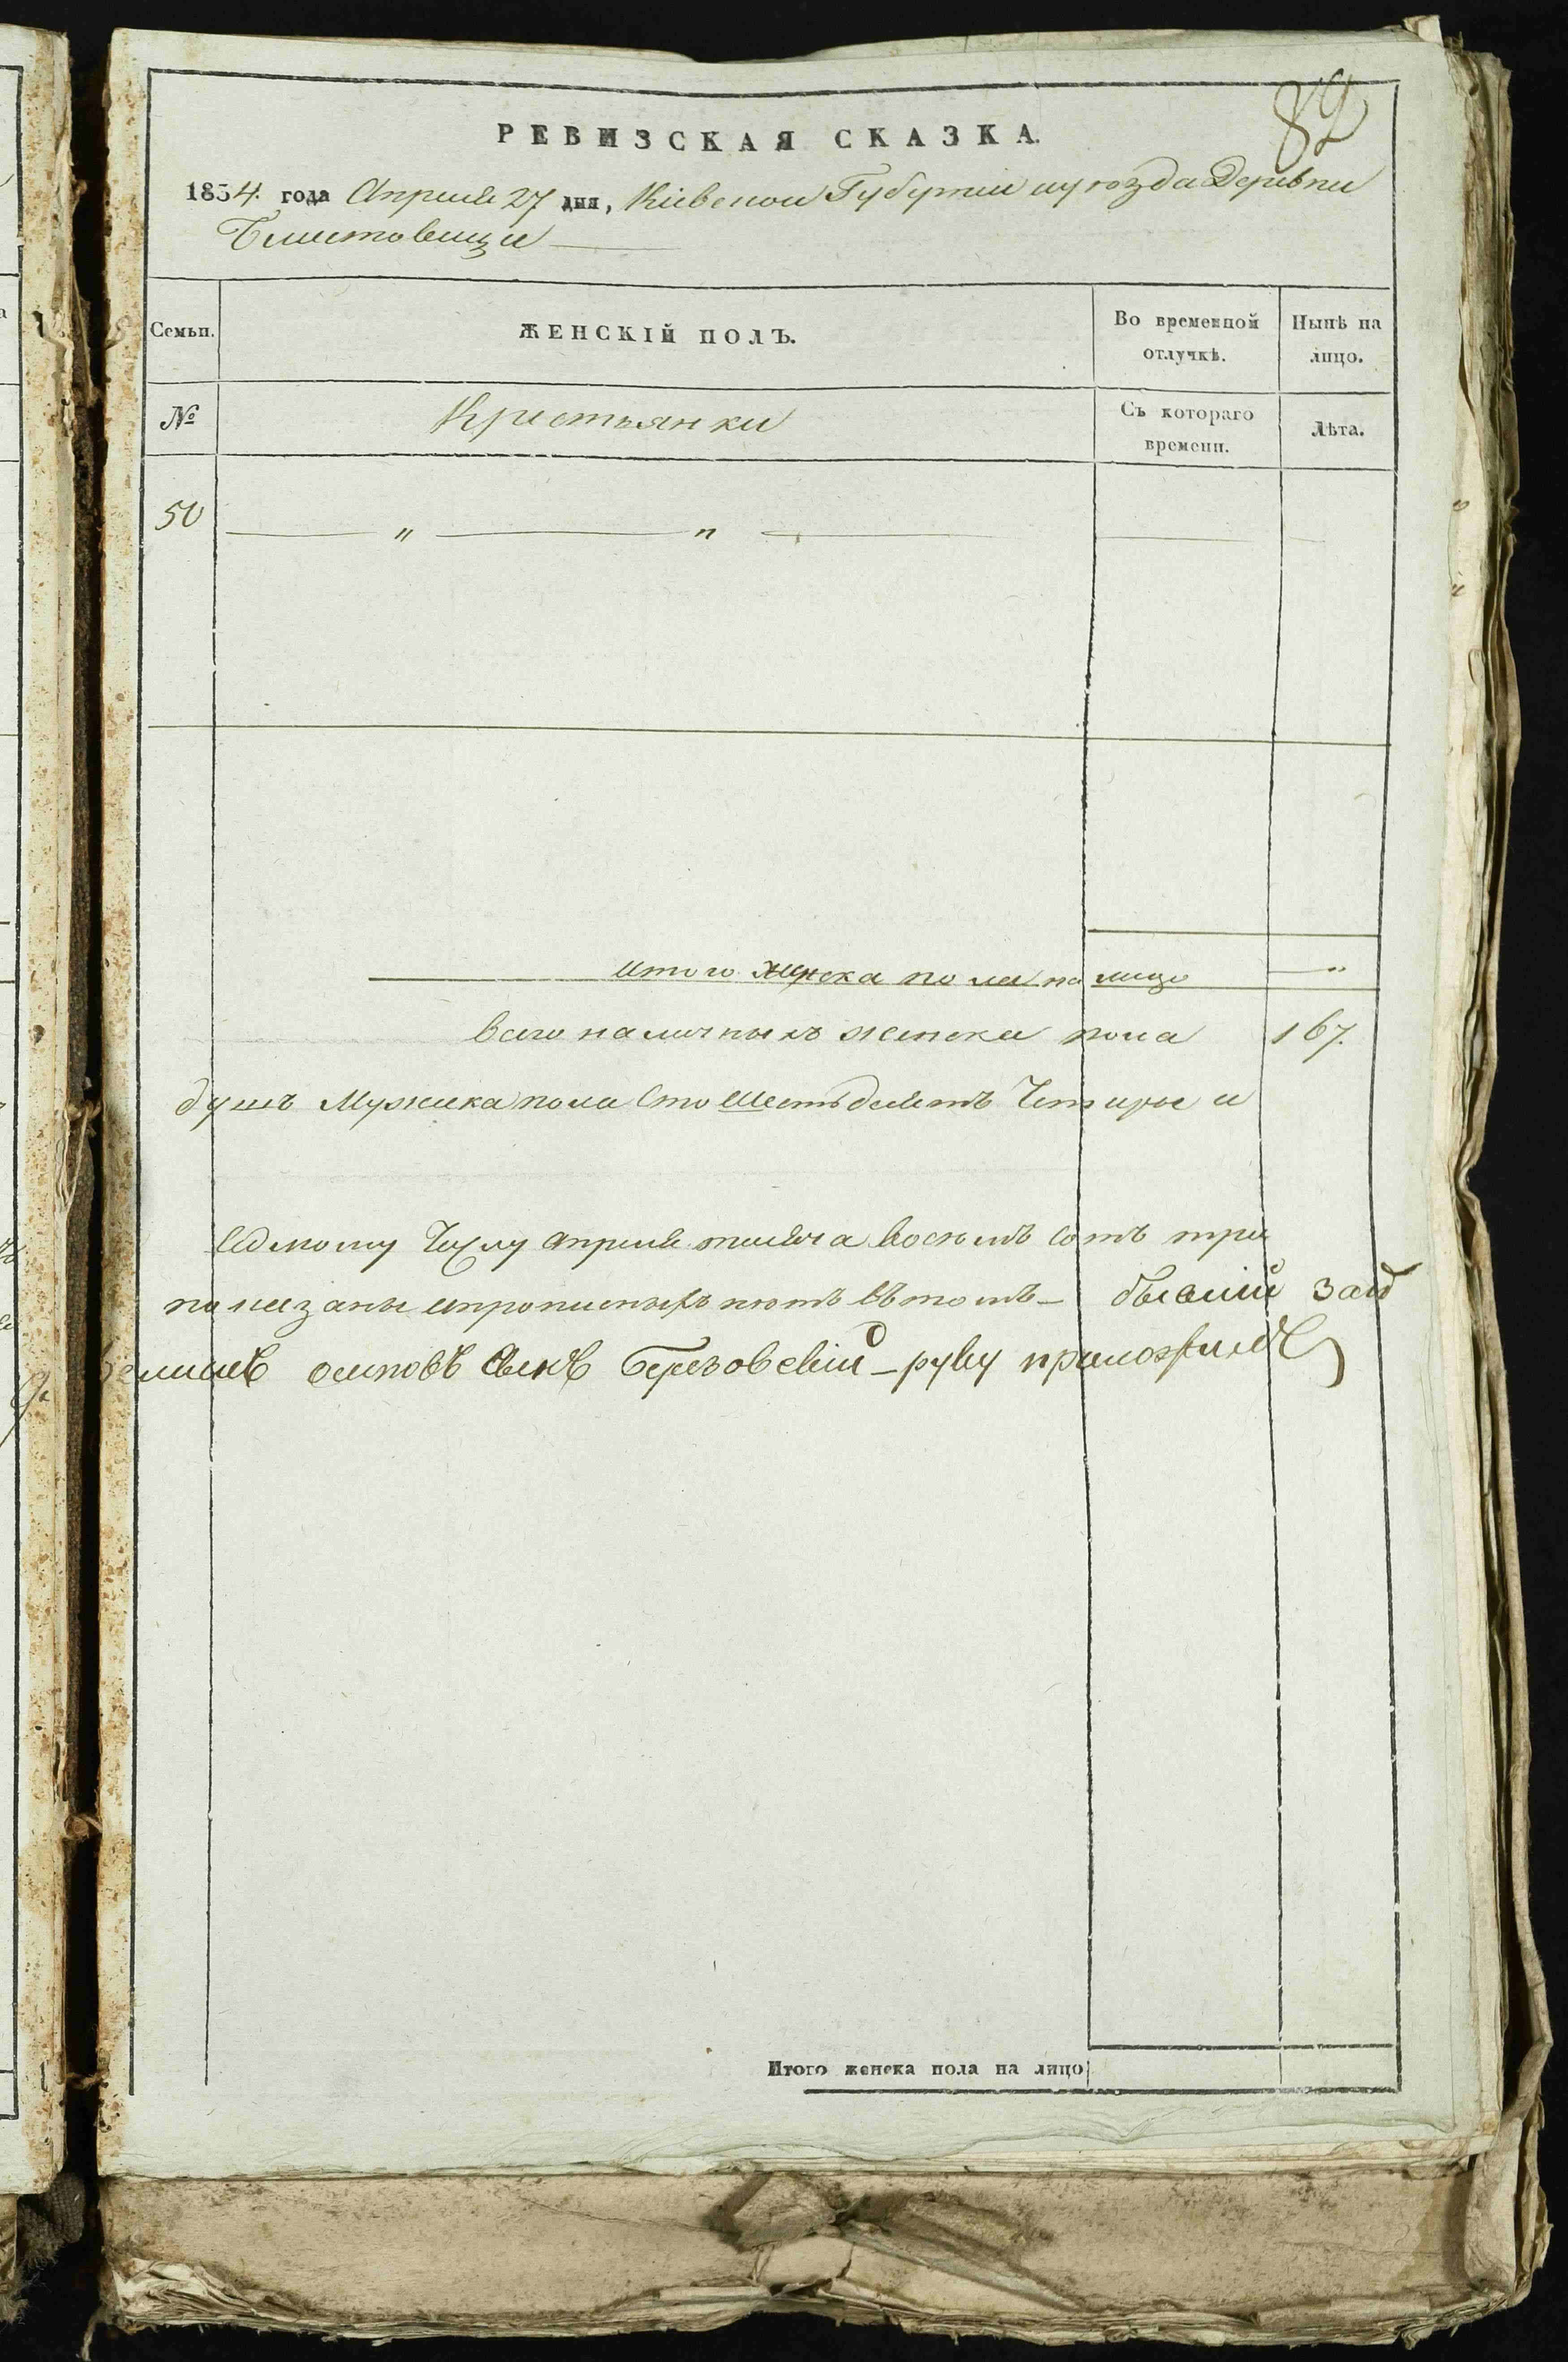 82
РЕВИЗСКАЯ СКАЗКА.
1834. года Апреля 27 дня, Кіевской Губерніи иуезда Деревни
Блиставицы
Семьи. ЖЕНСКІЙ ПОЛЪ. Во временной отлучкѣ. Нынѣ на лицо.
№ Крестьянки Съ котораго времени. Лѣта.
50 — " — " —
итого женска пола на лицо — "
всего наличныхъ женска пола 167.
душъ Мужска пола Сто Шестьдесятъ Четире и
седмому Числу апреля тисяча восемъ сотъ три
показаны ипрописныхъ нетъ вътомъ —
осиповъ сынъ Березовскій — руку приложилъ
Итого женска пола на лицо